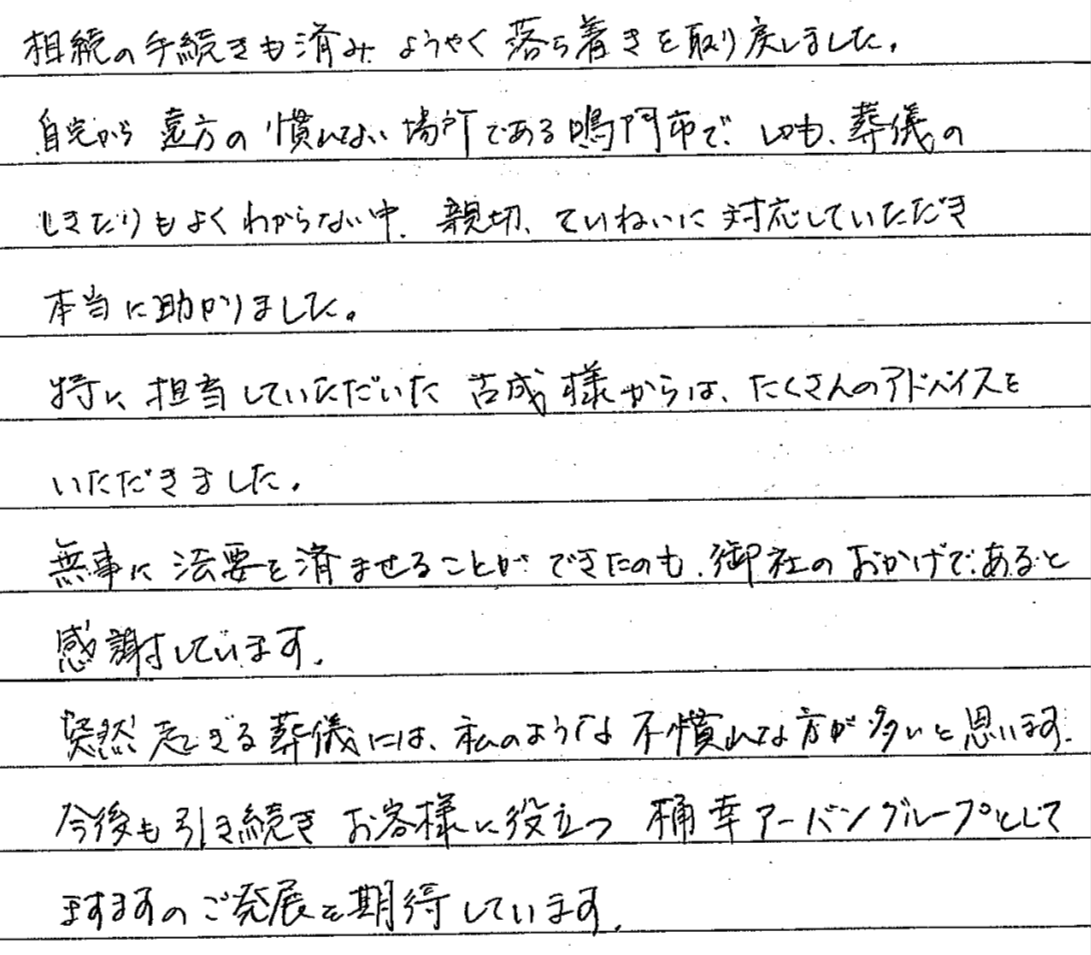 相続の手続きも済み ようやく 落ち着きを取り戻しました。
自宅から 遠方の 慣れてない 場所である鳴門市で、しかも、葬儀の
しきたりもよくわからない中、親切、ていねいに 対応していただき
本当に助かりました。
特に 担当していただいた 古成様からは、たくさんのアドバイスを
いただきました。
無事に 法要を済ませることが できたのも、御社の おかげであると
感謝しています。
突然 起きる 葬儀には、私のような 不慣れな方が多いと思います。
今後も引き続き お客様に役立つ 桶幸アーバングループとして
ますますの ご発展を期待しています。